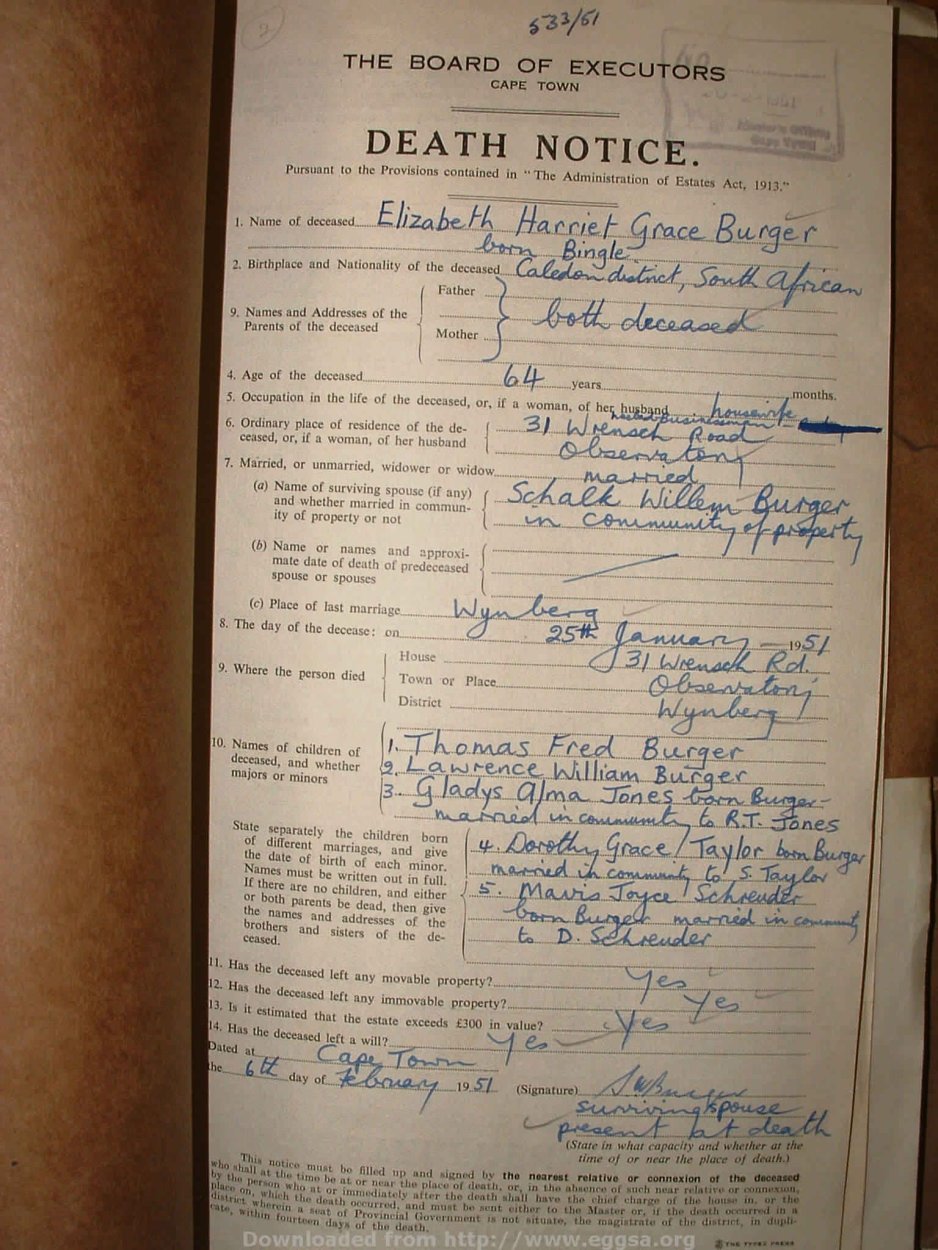 533/51
THE BOARD OF EXECUTORS
CAPE TOWN
DEATH NOTICE.
Pursuant to the Provisions contained in "The Administration of Estates Act, 1913."
1. Name of deceased Elizabeth Harriet Grace Burger
born Bingle
2. Birthplace and Nationality of the deceased Caledon district, South African
9. Names and Addresses of the Parents of the deceased
Father
both deceased
Mother
4. Age of the deceased 64 years months.
5. Occupation in the life of the deceased, or, if a woman, of her husband housewife
6. Ordinary place of residence of the de- 31 Wrensch Road
ceased, or, if a woman, of her husband Observatory
7. Married, or unmarried, widower or widow married
(a) Name of surviving spouse (if any) Schalk Willem Burger
and whether married in commun- in community of property
ity of property or not
(b) Name or names and approxi-
mate date of death of predeceased
spouse or spouses
(c) Place of last marriage Wynberg
8. The day of the decease: on 25th January 1951
9. Where the person died
House 31 Wrensch Rd.
Town or Place Observatory
District Wynberg
10. Names of children of
deceased, and whether
majors or minors
1. Thomas Fred Burger
2. Lawrence William Burger
3. Gladys Alma Jones born Burger-
married in community to R.T. Jones
State separately the children born
of different marriages, and give
the date of birth of each minor.
Names must be written out in full.
If there are no children, and either
or both parents be dead, then give
the names and addresses of the
brothers and sisters of the de-
ceased.
4. Dorothy Grace Taylor born Burger
married in community to S. Taylor
5. Mavis Joyce Schreuder
born Burger married in community
to D. Schreuder
11. Has the deceased left any movable property? Yes
12. Has the deceased left any immovable property? Yes
13. Is it estimated that the estate exceeds £300 in value? Yes
14. Has the deceased left a will? Yes
Dated at Cape Town
the 6th day of February 1951 (Signature) S W Burger
surviving spouse
present at death
(State in what capacity and whether at the
time of or near the place of death.)
This notice must be filled up and signed by the nearest relative or connexion of the deceased
who shall at the time be at or near the place of death, or, in the absence of such near relative or connexion,
by the person who at or immediately after the death shall have the chief charge of the house in, or the
place on, which the death occurred, and must be sent either to the Master or, if the death occurred in a
district wherein a seat of Provincial Government is not situate, the magistrate of the district, in dupli-
cate, within fourteen days of the death.
Downloaded from http://www.eggsa.org